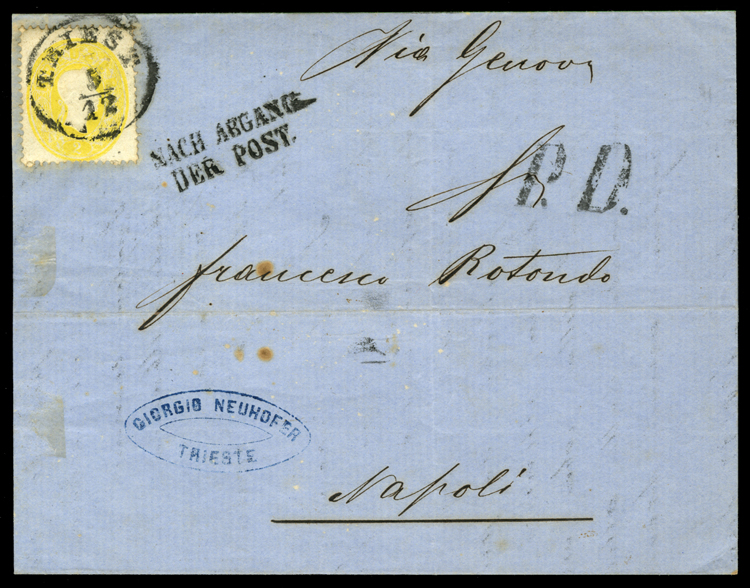 TRIEST
5/12
Via Genova
NACH ABGANG
DER POST.
P.D.
Francesco Rotondo
GIORGIO NEUHOFER
TRIESTE
Napoli